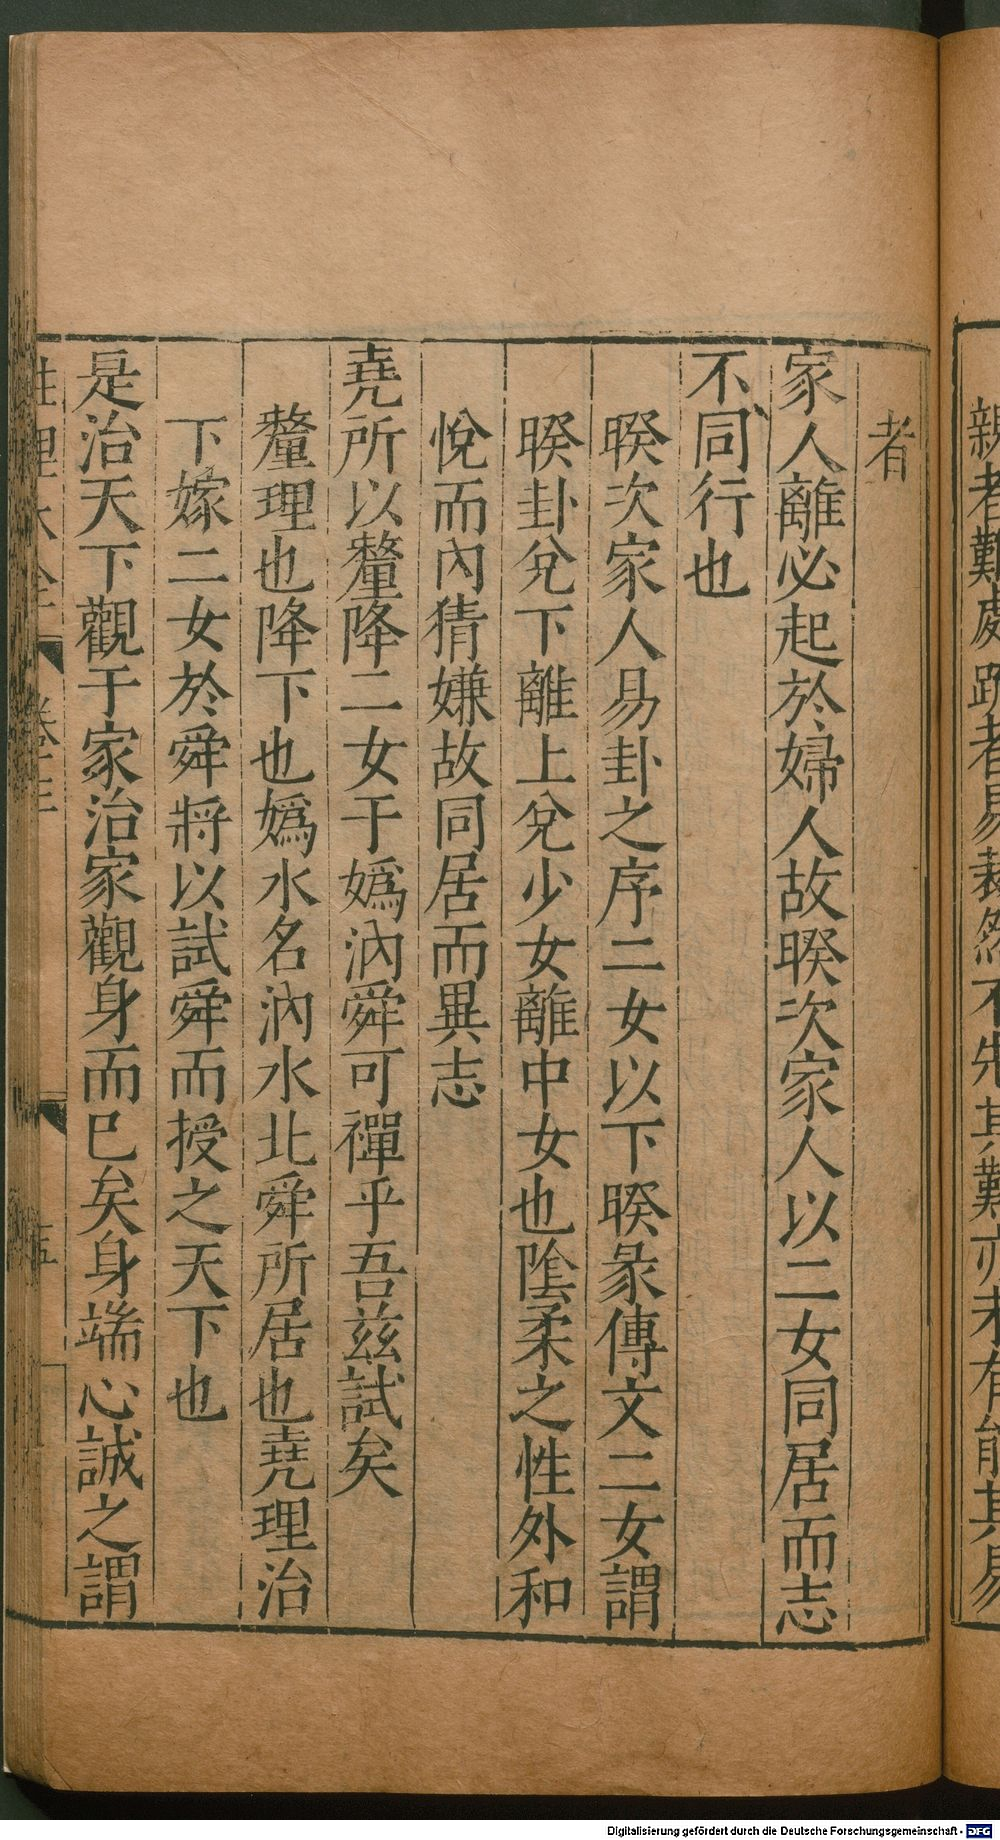 親者難處疎者易裁然不先其難亦未有能其易
者
家人離必起於婦人故睽次家人以二女同居而志
不同行也
睽次家人易卦之序二女以下睽彖傳文二女謂
睽卦兌下離上兌少女離中女也陰柔之性外和
悅而內猜嫌故同居而異志
堯所以釐降二女于嬀汭舜可禪乎吾茲試矣
釐理也降下也嬀水名汭水北舜所居也堯理治
下嫁二女於舜將以試舜而授之天下也
是治天下觀于家治家觀身而已矣身端心誠之謂
性理大全 卷之三 五
Digitalisierung gefördert durch die Deutsche Forschungsgemeinschaft - DFG